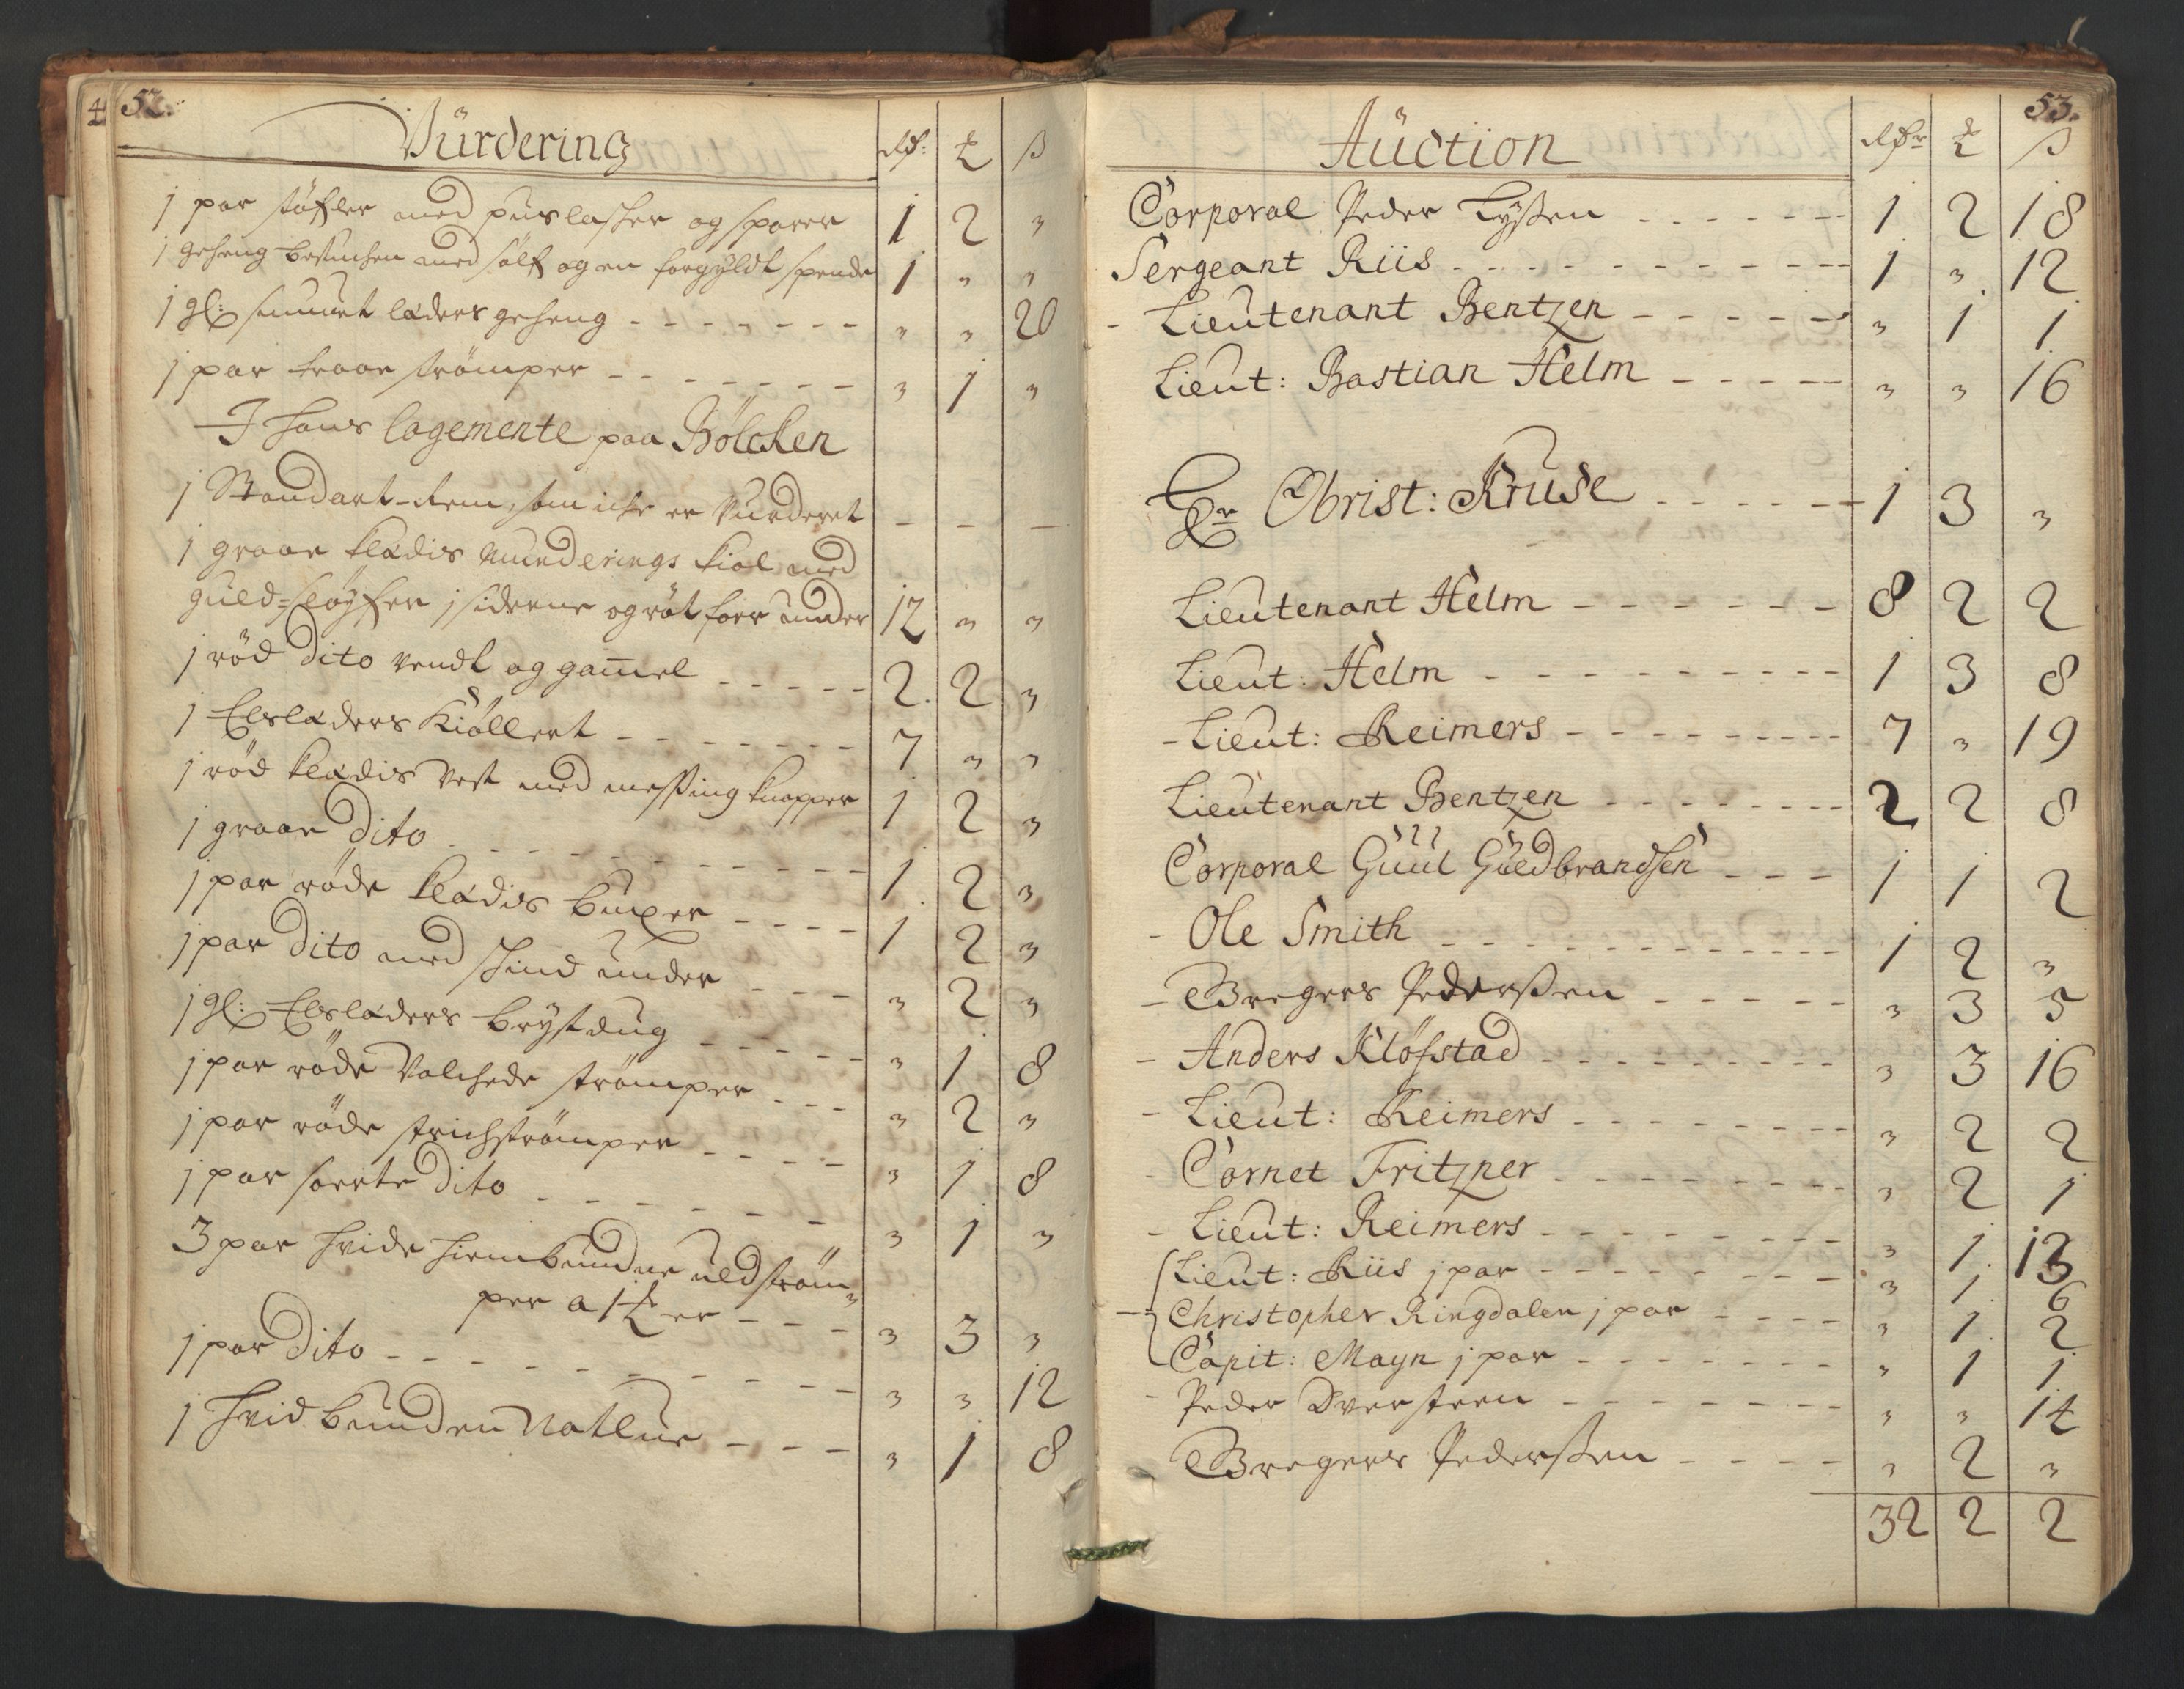 52.
Vürdering Rdr: ₰ ß
1 par støfler med pürlasker og sporer 1 2 "
1 geheng besmehen med sølf og en forgyldt spende 1 " "
1 gl: simmet læders geheng - - - " " 20
1 par traae strømper - - - " 1 "
I hans logemente paa Bölchen
1 Standart-Rem, som iche er Vurderet - - -
1 graae klædis Munderings kiol med
guld-sløyfer i siderne og røt foer under 12 " "
1 rød Dito vendt og gamel - - - 2. 2 "
1 Elslæders Kiøllert - - - 7 " "
1 rød klædis Vest med messing knapper 1 2 "
1 graae Dito - - - 1 2 "
1 par røde klædis buxer - - - 1 2 "
1 par Dito med skind under - - - " 2 "
1 gl: Elslæders brystdug - - - " 1 8
1 par røde Valchede strømper - - - " 2 "
1 par røde strichstrømper - - - " 1 8
1 par sorte Dito - - - " 1 "
3 par hvide hiembundne uldstrøm=
per a 1 ₰ er - - - " 3 "
1 par Dito - - - " " 12
1 hvid bunden Natlue - - - " 1 8
53.
Aüction Rdr ₰ ß
Corporal Peder Tyßen - - - 1 2 18
Sergeant Riis - - - 1 " 12
- Lieutenant Bentzen - - - " 1 1
Lieut: Bastian Helm - - - " " 16
Hr Obrist: Kruse - - - 1 3 "
Lieutenant Helm - - - 8 2 2
Lieut: Helm - - - 1 3 8
- Lieut: Reimers - - - 7 " 19
Lieutenant Bentzen - - - 2 2 8
Corporal Güül Güldbrandsen - - - 1 1 2
- Ole Smith - - - 1 2 "
- Bregers Pederßen - - - " 3 5
- Anders Klöfstad - - - " 3 16
- Lieut: Reimers - - - " 2 2
- Cornet Fritzner - - - " 2 1
- Lieut: Reimers - - - " 1 13
Lieut: Riis 1 par - - - " 1 6
- Christopher Ringdalen 1 par - - - " 1 2
Capit: Mayn 1 par - - - " 1 1
- Peder Dversteen - - - " " 14
Bregers Pederßen - - - " 2 "
32 2 2